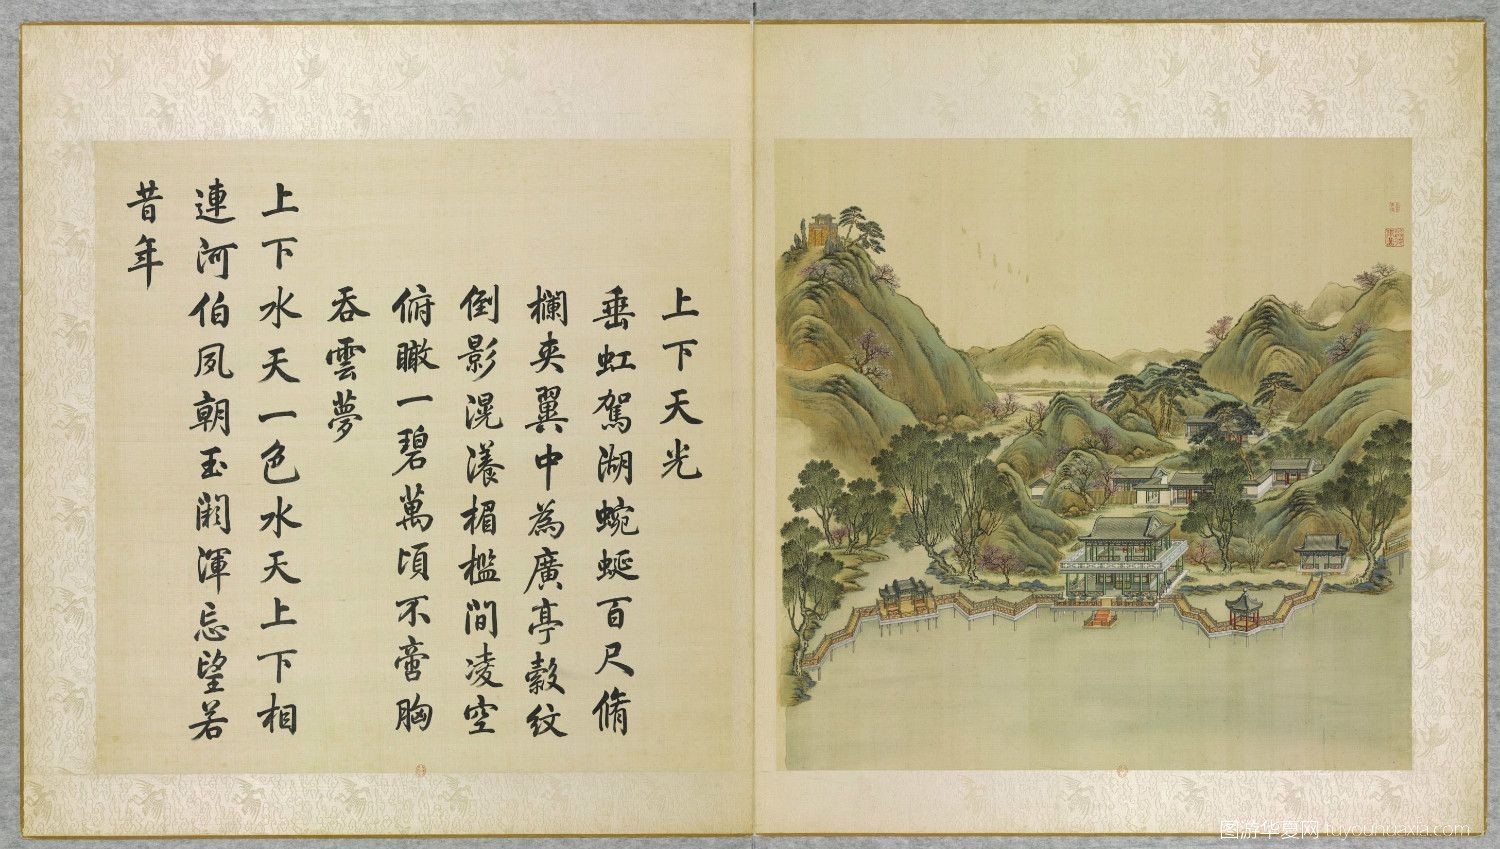 上下天光
垂虹駕湖蜿蜒百尺脩
欄夾翼中為廣亭縠紋
倒影滉瀁楣檻間凌空
俯瞰一碧萬頃不啻胸
吞雲夢
上下水天一色水天上下相
連河伯夙朝玉闕渾忘望若
昔年
图游华夏网 tuyouhuaxia.com